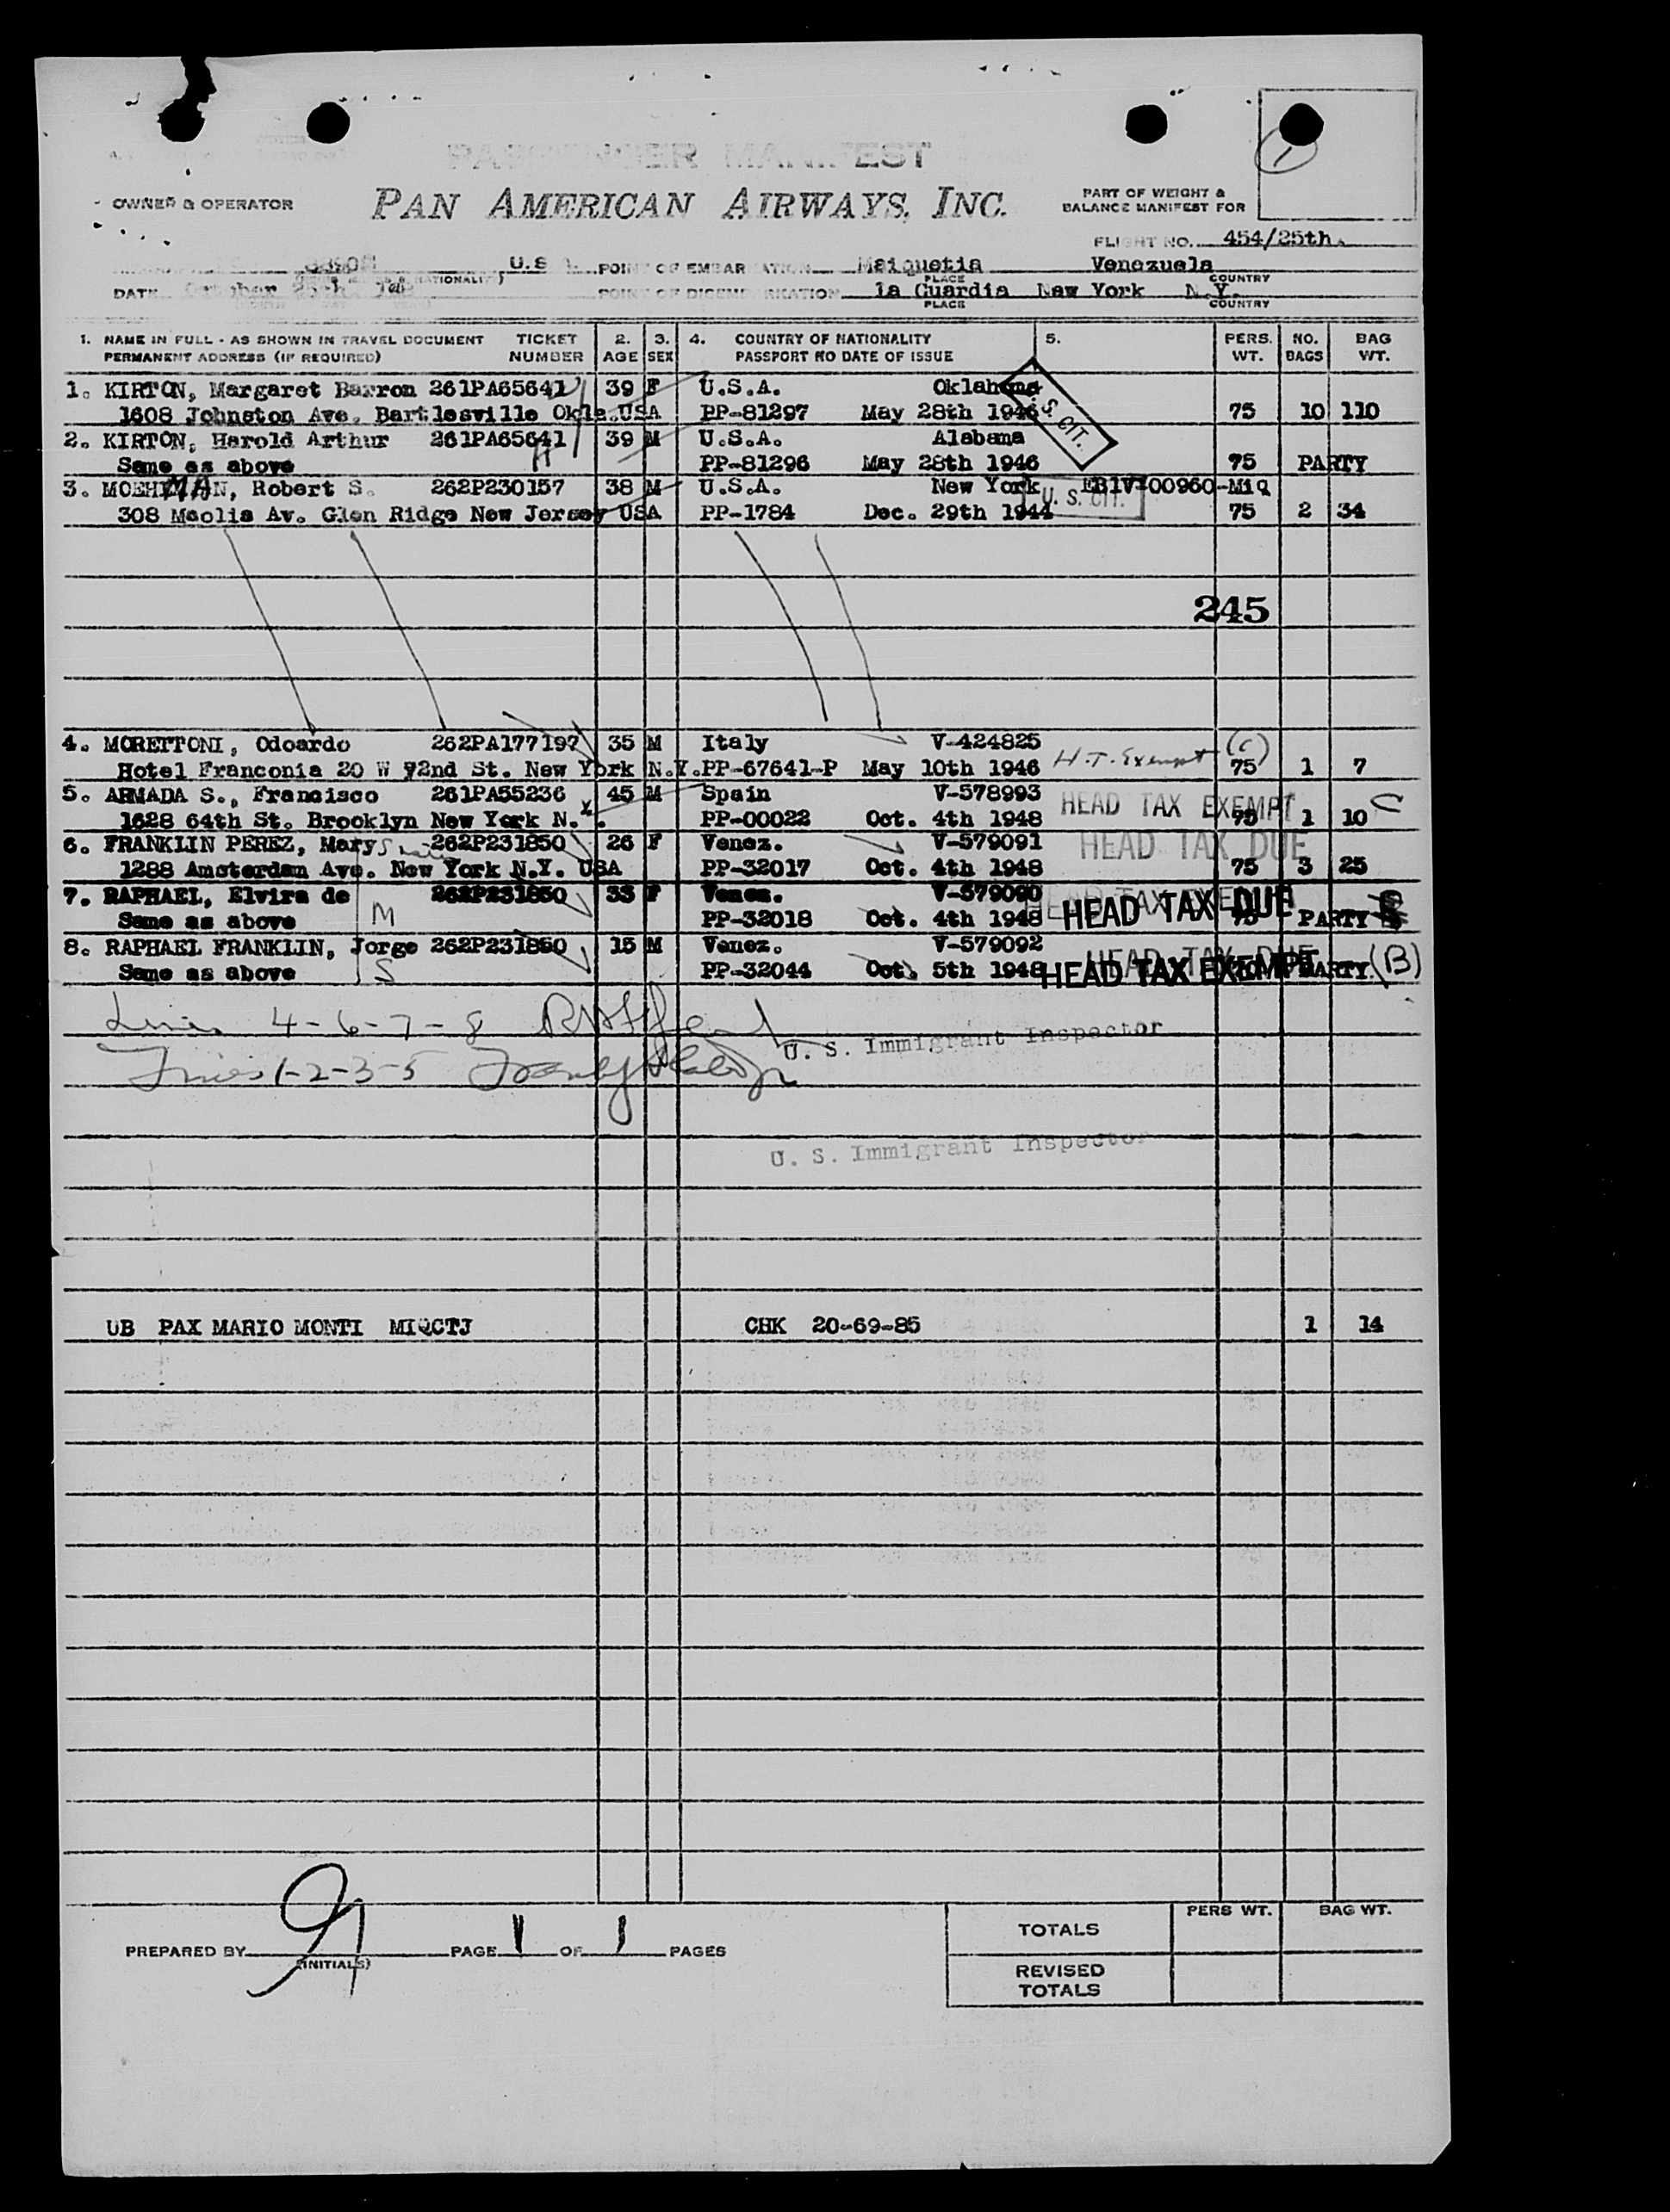 PASSENGER MANIFEST
OWNER & OPERATOR PAN AMERICAN AIRWAYS, INC. PART OF WEIGHT & BALANCE MANIFEST FOR
1
FLIGHT NO. 454/25th
U.S. POINT OF EMBARKATION Maiquetia Venezuela
NATIONALITY) PLACE COUNTRY
DATE October 25th POINT OF DISEMBARKATION La Guardia New York N.Y.
PLACE COUNTRY
1. NAME IN FULL - AS SHOWN IN TRAVEL DOCUMENT TICKET 2. 3. 4. COUNTRY OF NATIONALITY 5. PERS. NO. BAG
PERMANENT ADDRESS (IF REQUIRED) NUMBER AGE SEX PASSPORT NO DATE OF ISSUE WT. BAGS WT.
1. KIRTON, Margaret Barron 261PA65641 39 F U.S.A. Oklahoma
1608 Johnston Ave. Bartlesville Okla. USA PP-81297 May 28th 1946 S CIT. 75 10 110
2. KIRTON, Harold Arthur 261PA65641 39 M U.S.A. Alabama
Same as above PP-81296 May 28th 1946 75 PARTY
3. MOEHLMAN, Robert S. 262P230157 38 M U.S.A. New York EB1VI00960-MiQ
308 Moolis Av. Glen Ridge New Jersey USA PP-1784 Dec. 29th 1944 U. S. CIT. 75 2 34
245
4. MORETTONI, Odoardo 262PA177197 35 M Italy V-424825 (C)
Hotel Franconia 20 W 72nd St. New York N.Y. PP-67641-P May 10th 1946 H.T. Exempt 75 1 7
5. ARMADA S., Francisco 261PA55236 45 M Spain V-578993
1628 64th St. Brooklyn New York N.Y. PP-00022 Oct. 4th 1948 HEAD TAX EXEMPT 75 1 10 C
6. FRANKLIN PEREZ, Mary 262P231850 26 F Venez. V-579091 HEAD TAX DUE
1288 Amsterdam Ave. New York N.Y. USA PP-32017 Oct. 4th 1948 75 3 25
7. RAPHAEL, Elvira de 262P231850 33 F Venez. V-579090
Same as above M PP-32018 Oct. 4th 1948 HEAD TAX DUE 75 PARTY
8. RAPHAEL FRANKLIN, Jorge 262P231850 15 M Venez. V-579092 HEAD TAX DUE
Same as above S PP-32044 Oct. 5th 1948 HEAD TAX EXEMPT PARTY (B)
Lines 4-6-7-8
U. S. Immigrant Inspector
Lines 1-2-3-5
U. S. Immigrant Inspector
UB PAX MARIO MONTI MIQCTJ CHK 20-69-85 1 14
PERS WT. BAG WT.
TOTALS
PREPARED BY (INITIALS) PAGE 1 OF 1 PAGES
REVISED TOTALS